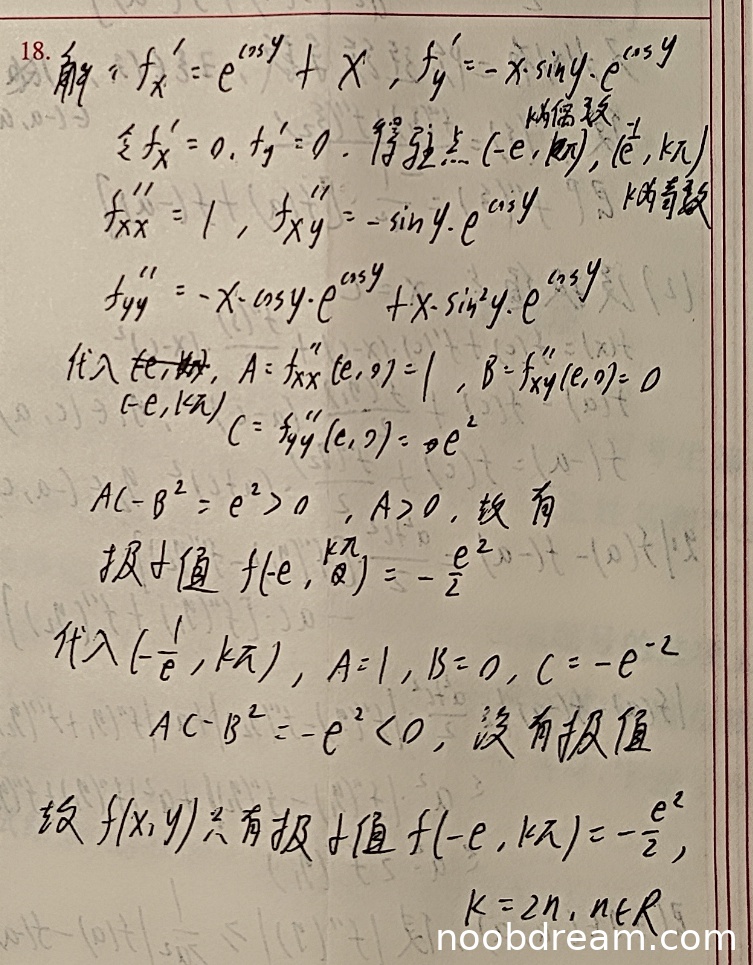 18. 解: fx' = e^cosy + x , fy' = -x·siny·e^cosy
k为偶数
令fx' = 0, fy' = 0. 得驻点 (-e, kπ), (-e^-1, kπ)
k为奇数
fxx'' = 1 , fxy'' = -siny·e^cosy
fyy'' = -x·cosy·e^cosy + x·sin²y·e^cosy
代入 , A = fxx''(e, 0) = 1 , B = fxy''(e, 0) = 0
(-e, kπ)
C = fyy''(e, 0) = e²
AC-B² = e² > 0 , A > 0, 故有
极小值 f(-e, kπ) = -e²/2
代入 (-1/e, kπ), A=1, B=0, C = -e^-2
AC-B² = -e² < 0, 没有极值
故 f(x,y) 只有极小值 f(-e, kπ) = -e²/2 ,
k = 2n, n∈R
noobdream.com